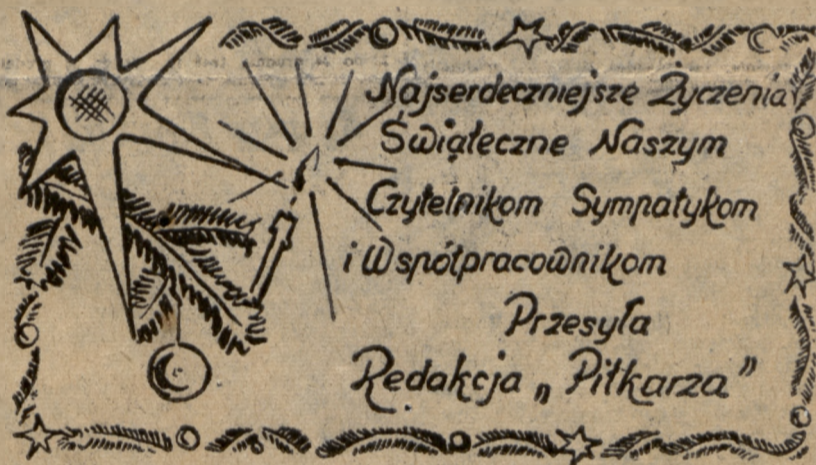 Najserdeczniejsze Życzenia
Świąteczne Naszym
Czytelnikom Sympatykom
i Współpracownikom
Przesyła
Redakcja „Piłkarza”